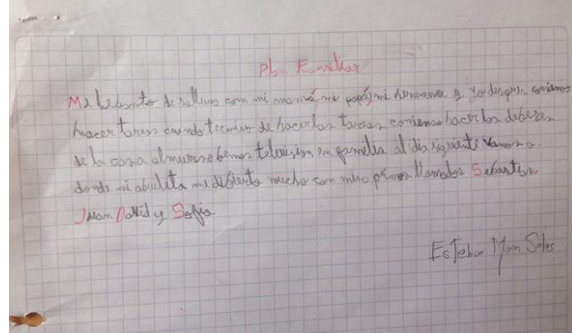 Plan Familiar
Me lebanto desalluno con mi mamá, mi papá, mi hermano y yo despues comienso
hacer tareas cuando termino de hacer las tareas comienso hacer los deberes
de la casa almuerso bemos television en familia al dia siguiente vamos a
donde mi abuelita me dibierto mucho con mis primos llamados Sebastian
Juan David y Sofia
Esteban Salas